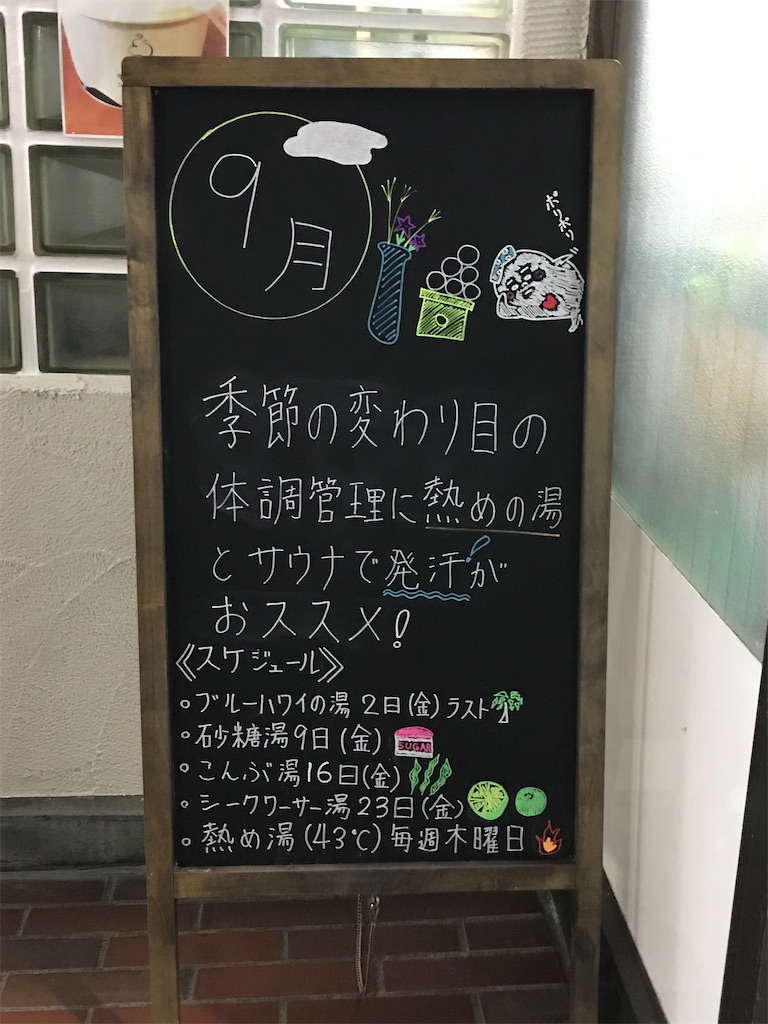 9月
ポリポリ
季節の変わり目の
体調管理に熱めの湯
とサウナで発汗が
おススメ!
《スケジュール》
○ブルーハワイの湯 2日(金)ラスト
○砂糖湯9日(金)
SUGAR
○こんぶ湯16日(金)
○シークワーサー湯23日(金)
○熱め湯(43℃)毎週木曜日